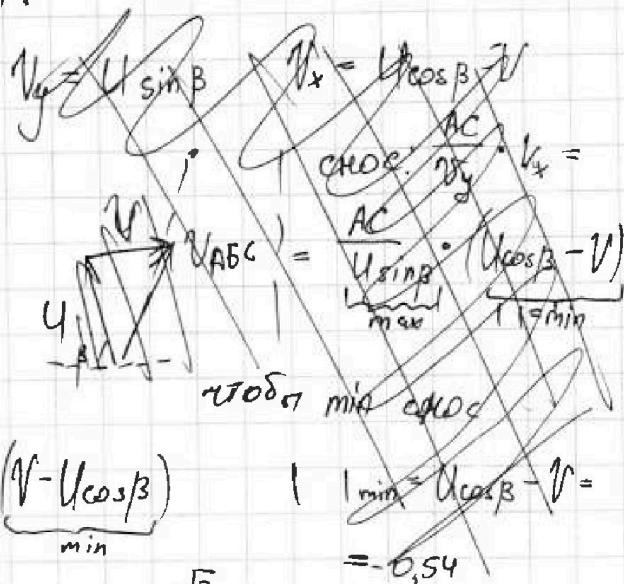 Vy = U sinβ   Vx = U cosβ - V
снос: AC/Vy · Vx =
V   VАБС   = AC/(U sinβ) · (U cosβ - V)
U   max   | | = min
β
чтобы min снос
(V - U cosβ)   | |min = U cosβ - V =
min
= -0,54